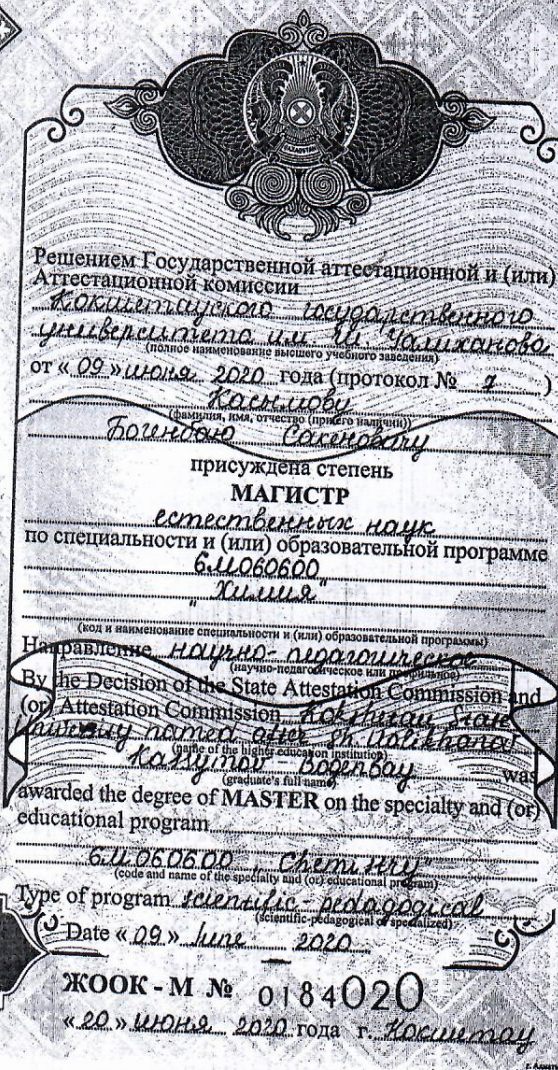 ҚАЗАҚСТАН
Решением Государственной аттестационной и (или)
Аттестационной комиссии
Кокшетауского государственного
университета им. Ш. Уалиханова
(полное наименование высшего учебного заведения)
от « 09 » июня 2020 года (протокол № 7 )
Касымову
(фамилия, имя, отчество (при его наличии))
Богенбаю Сакеновичу
присуждена степень
МАГИСТР
естественных наук
по специальности и (или) образовательной программе
6М060600
"Химия"
(код и наименование специальности и (или) образовательной программы)
Направление научно-педагогическое
(научно-педагогическое или профильное)
By the Decision of the State Attestation Commission and
(or) Attestation Commission Kokshetau State
University named after Sh. Ualikhanov
(name of the higher education institution)
Kassymov Bogenbay was
(graduate's full name)
awarded the degree of MASTER on the specialty and (or)
educational program
6М060600 "Chemistry"
(code and name of the specialty and (or) educational program)
Type of program scientific-pedagogical
(scientific-pedagogical or specialized)
Date « 09 » June 2020
ЖООК - М № 0184020
« 20 » июня 2020 года г. Кокшетау